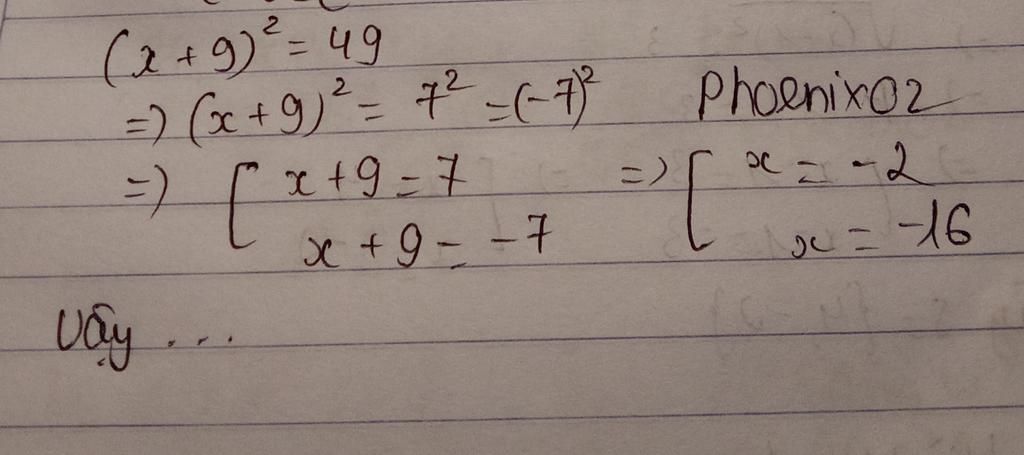 (x + 9)² = 49
=) (x + 9)² = 7² = (-7)² Phoenix02
=) [ x + 9 = 7 =) [ x = -2
x + 9 = -7 x = -16
Vậy ...